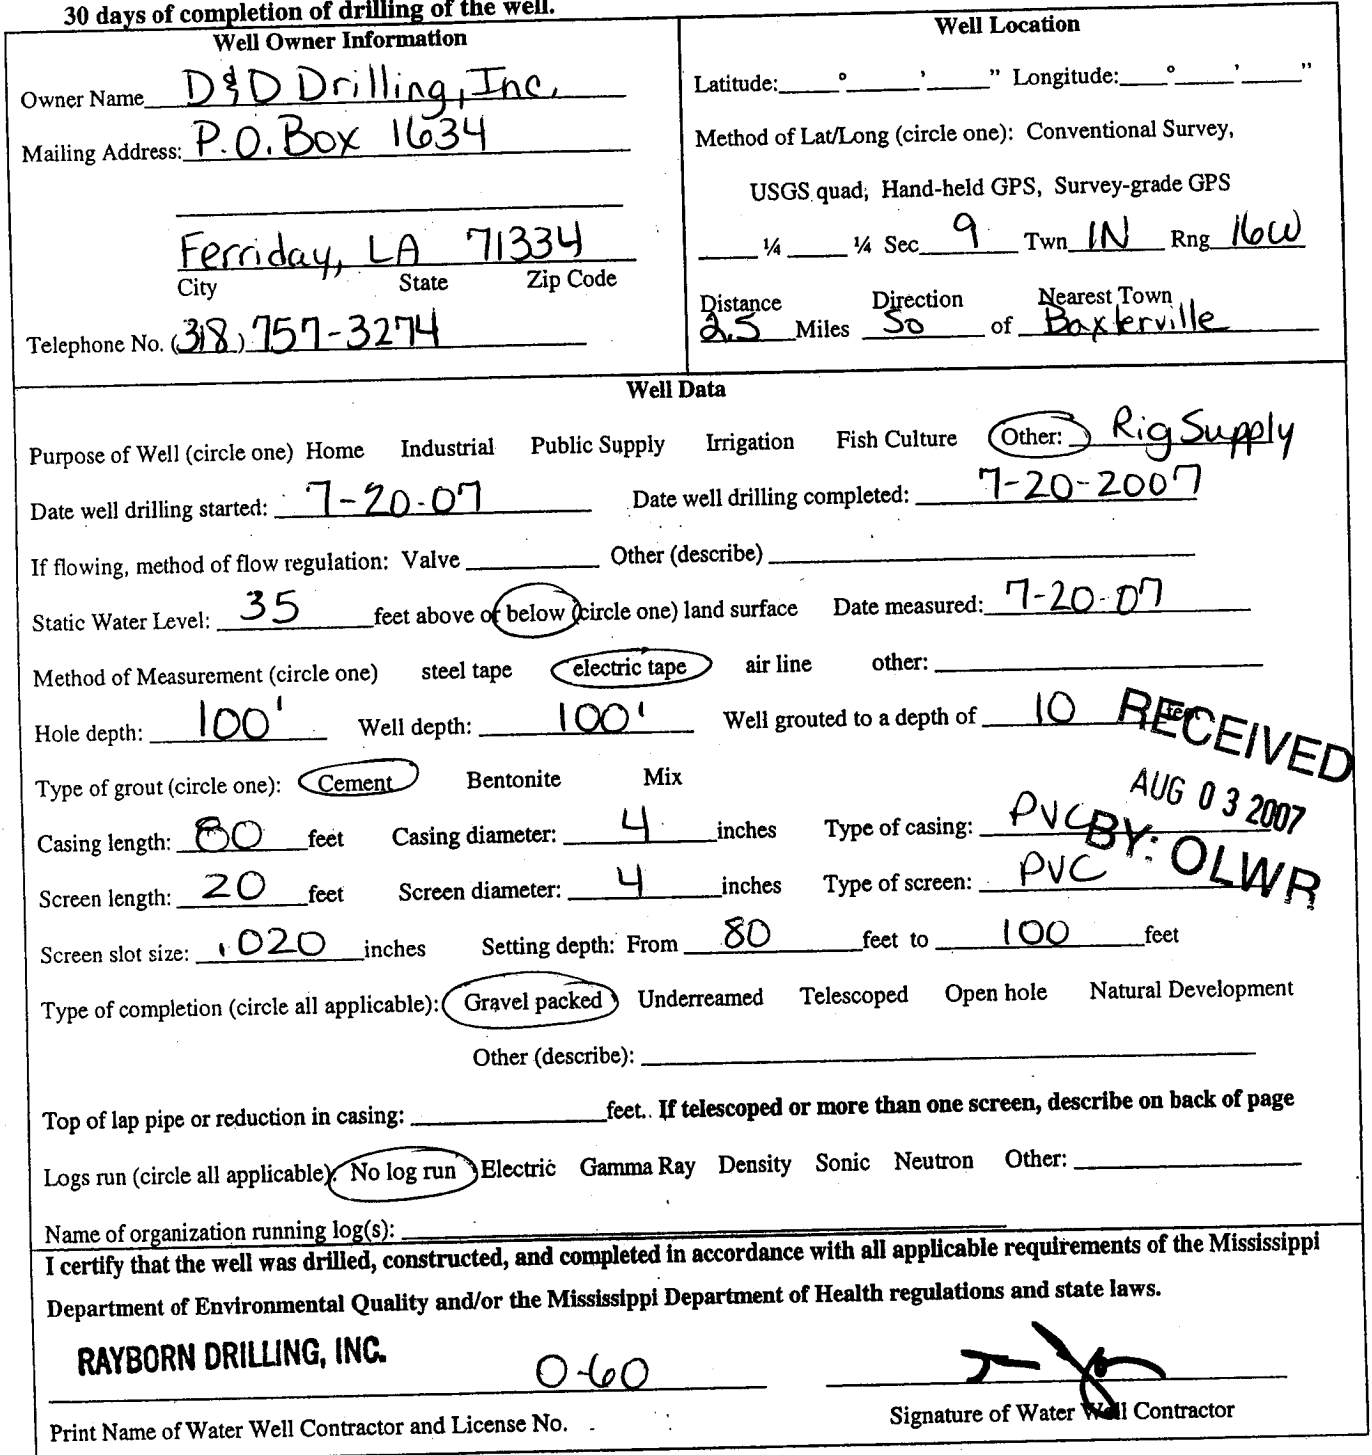 30 days of completion of drilling of the well.
Well Owner Information
Owner Name D&D Drilling, Inc.
Mailing Address: P.O. Box 1634
Ferriday, LA 71334
City State Zip Code
Telephone No. (318) 757-3274
Well Location
Latitude:____°____'____" Longitude:____°____'____"
Method of Lat/Long (circle one): Conventional Survey,
USGS quad, Hand-held GPS, Survey-grade GPS
____ ¼ ____ ¼ Sec 9 Twn 1N Rng 16W
Distance Direction Nearest Town
2.5 Miles So of Baxterville
Well Data
Purpose of Well (circle one) Home Industrial Public Supply Irrigation Fish Culture Other: Rig Supply
Date well drilling started: 7-20-07 Date well drilling completed: 7-20-2007
If flowing, method of flow regulation: Valve ________ Other (describe) ________
Static Water Level: 35 feet above or below (circle one) land surface Date measured: 7-20-07
Method of Measurement (circle one) steel tape electric tape air line other: ________
Hole depth: 100' Well depth: 100' Well grouted to a depth of 10 feet
RECEIVED
AUG 03 2007
BY: OLWR
Type of grout (circle one): Cement Bentonite Mix
Casing length: 80 feet Casing diameter: 4 inches Type of casing: PVC
Screen length: 20 feet Screen diameter: 4 inches Type of screen: PVC
Screen slot size: .020 inches Setting depth: From 80 feet to 100 feet
Type of completion (circle all applicable): Gravel packed Underreamed Telescoped Open hole Natural Development
Other (describe): ________
Top of lap pipe or reduction in casing: ________ feet. If telescoped or more than one screen, describe on back of page
Logs run (circle all applicable): No log run Electric Gamma Ray Density Sonic Neutron Other: ________
Name of organization running log(s): ________
I certify that the well was drilled, constructed, and completed in accordance with all applicable requirements of the Mississippi
Department of Environmental Quality and/or the Mississippi Department of Health regulations and state laws.
RAYBORN DRILLING, INC. 0-60
Print Name of Water Well Contractor and License No.
Signature of Water Well Contractor